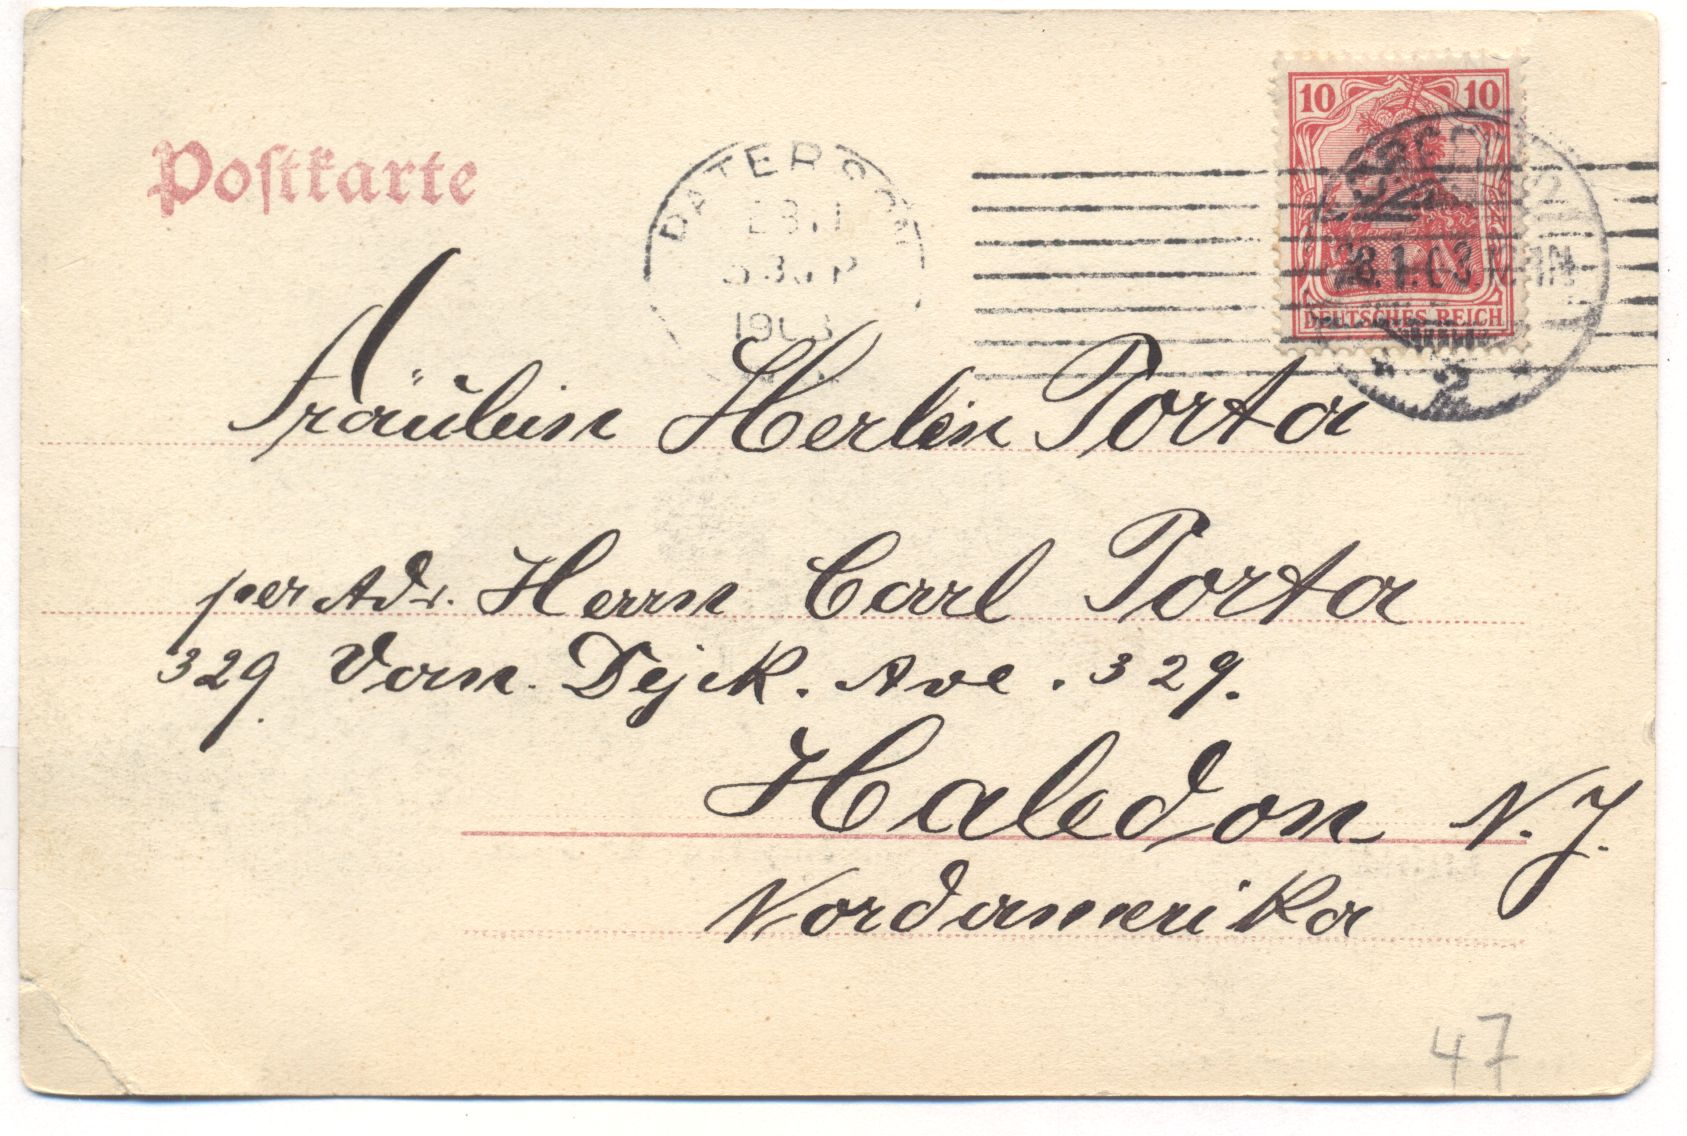 Postkarte
10 10
PATERSON
1903
28.1.03.
DEUTSCHES REICH
* 2 *
Fräulein Herlin Porta
per Adr. Herrn Carl Porta
329 Van. Dijck. Ave. 329.
Haledon N. J.
Nordamerika
47